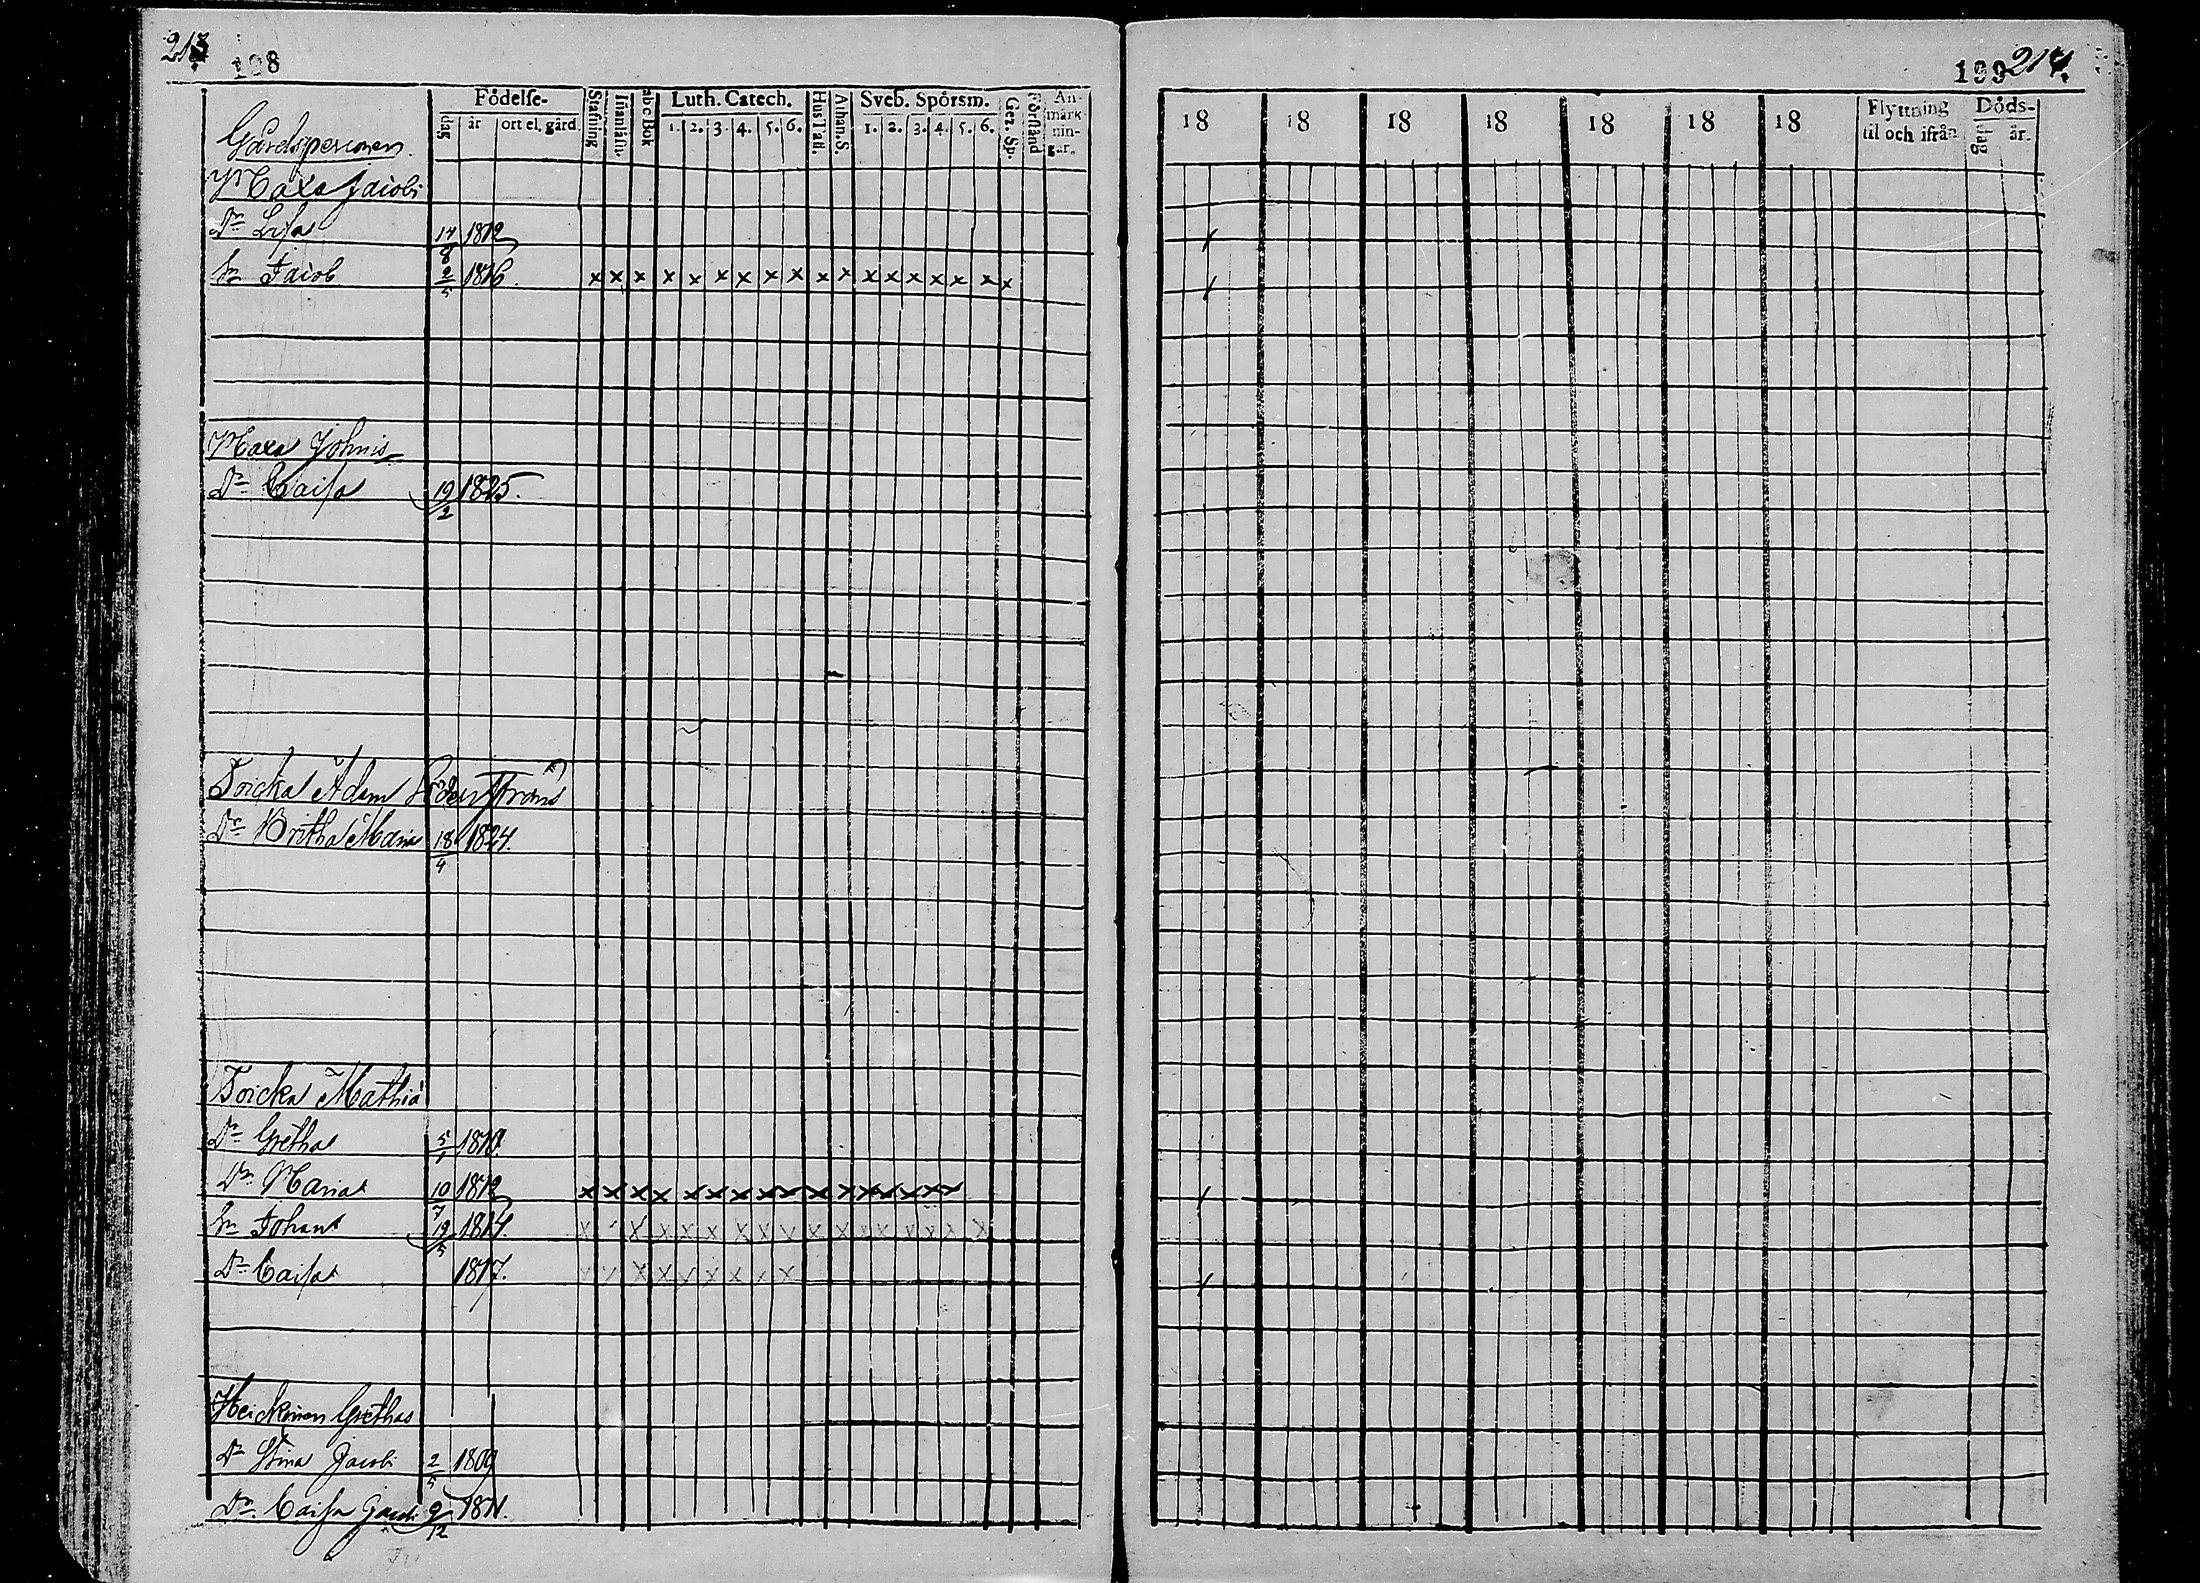 213. 198
Födelse-
dag år ort el. gård.
Stafning Inanläsn. abc Bok Luth. Catech. 1. 2. 3. 4. 5. 6. Hus Tafl. Athan. S. Sveb. Spörsm. 1. 2. 3. 4. 5. 6. Gez. Sp. Förstånd An-märk-nin-gar.
Gårdsperonen
Maxa Jacobs
Dr Lisa 14/8 1812
Sn Jacob 2/5 1816. x x x x x x x x x x x x x x x x x x
Maxa Johnis
Dr Caisa 19/2 1825.
Toicka Adam Söderströms
Dr Britha Maria 18/4 1824.
Toicka Mathia
Dr Gretha 5/1 1810.
Dr Maria 10/7 1812 x x x x x x x x x x x x x x x x
Sn Johan 19/5 1814. x x x x x x x x x x x x x x x x
Dr Caisa 1817. x x x x x x x x x
Heickinen Grethas
Dr Stina Jacobi 2/5 1809
Dr Caisa Jacobi 9/12 1811.
199 214.
18 18 18 18 18 18 18 Flyttning til och ifrån Döds- dag år.